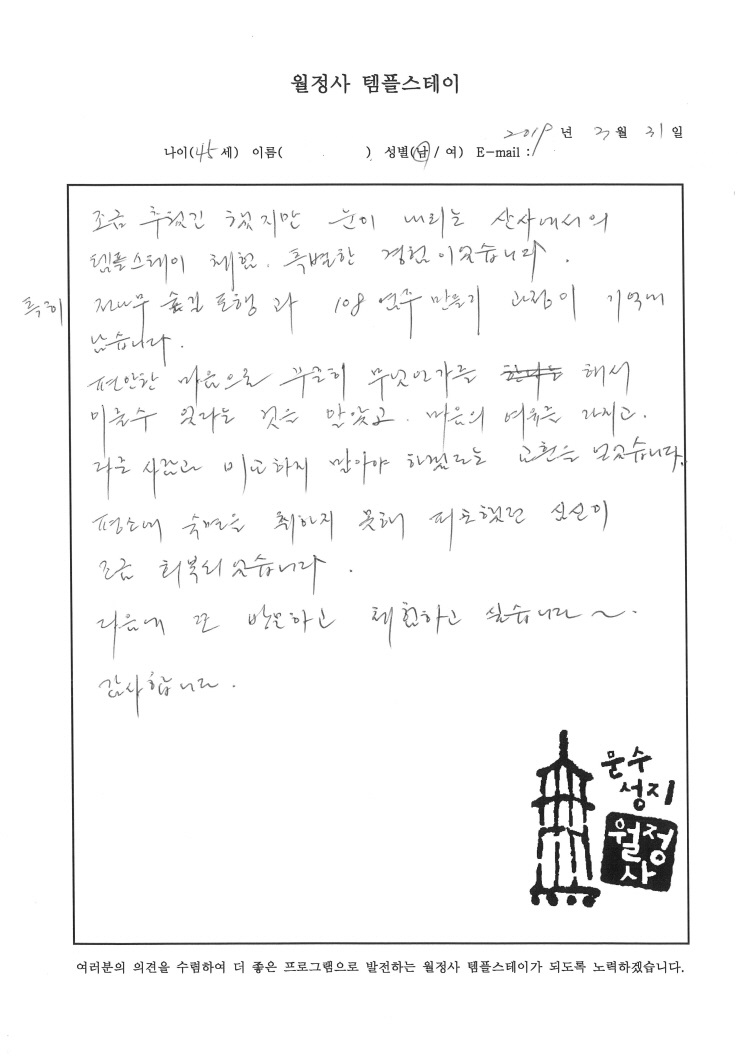 월정사 템플스테이
2019 년 3 월 31 일
나이(45 세) 이름( ) 성별(남 / 여) E-mail :
조금 추웠긴 했지만 눈이 내리는 산사에서의
템플스테이 체험. 특별한 경험이었습니다.
특히 전나무 숲길 포행과 108 염주 만들기 과정이 기억에
남습니다.
편안한 마음으로 꾸준히 무엇인가를 해서
이룰수 있다는 것을 알았고. 마음의 여유를 가지고.
다른 사람과 비교하지 말아야 하겠다는 교훈을 얻었습니다.
평소에 숙면을 취하지 못해 피로했던 심신이
조금 회복되었습니다.
다음에 또 방문하고 체험하고 싶습니다~.
감사합니다.
문수
성지
월정
사
여러분의 의견을 수렴하여 더 좋은 프로그램으로 발전하는 월정사 템플스테이가 되도록 노력하겠습니다.